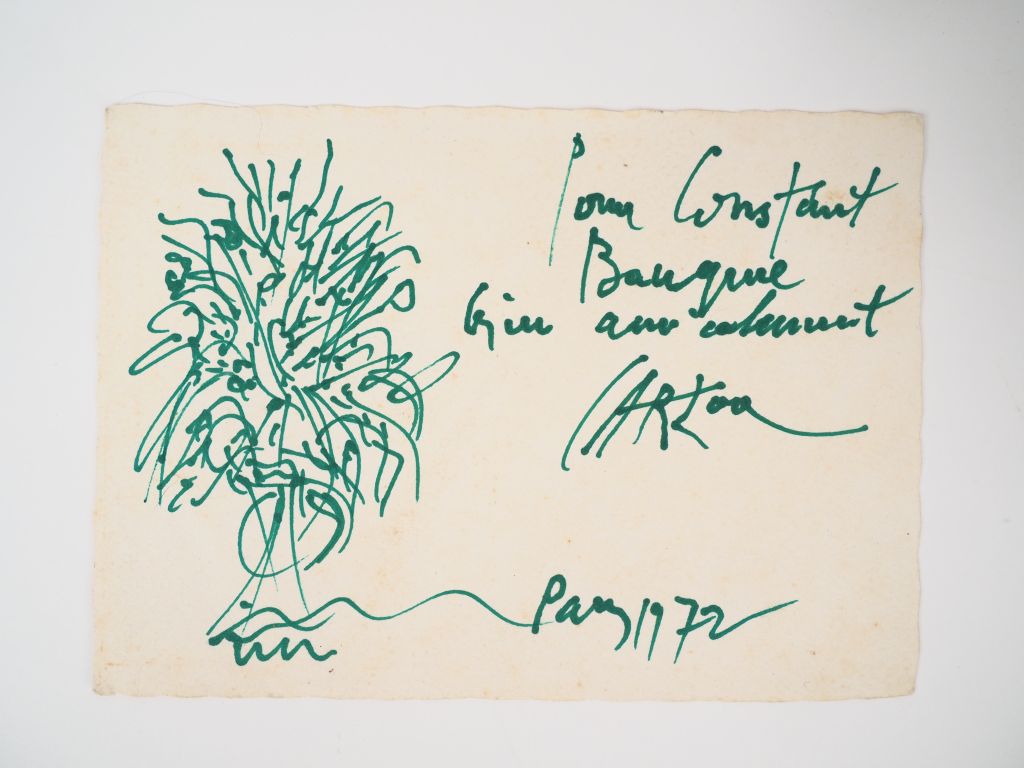 Pour Constant
Bauquie
bien amicalement
CARZOU
Paris 1972